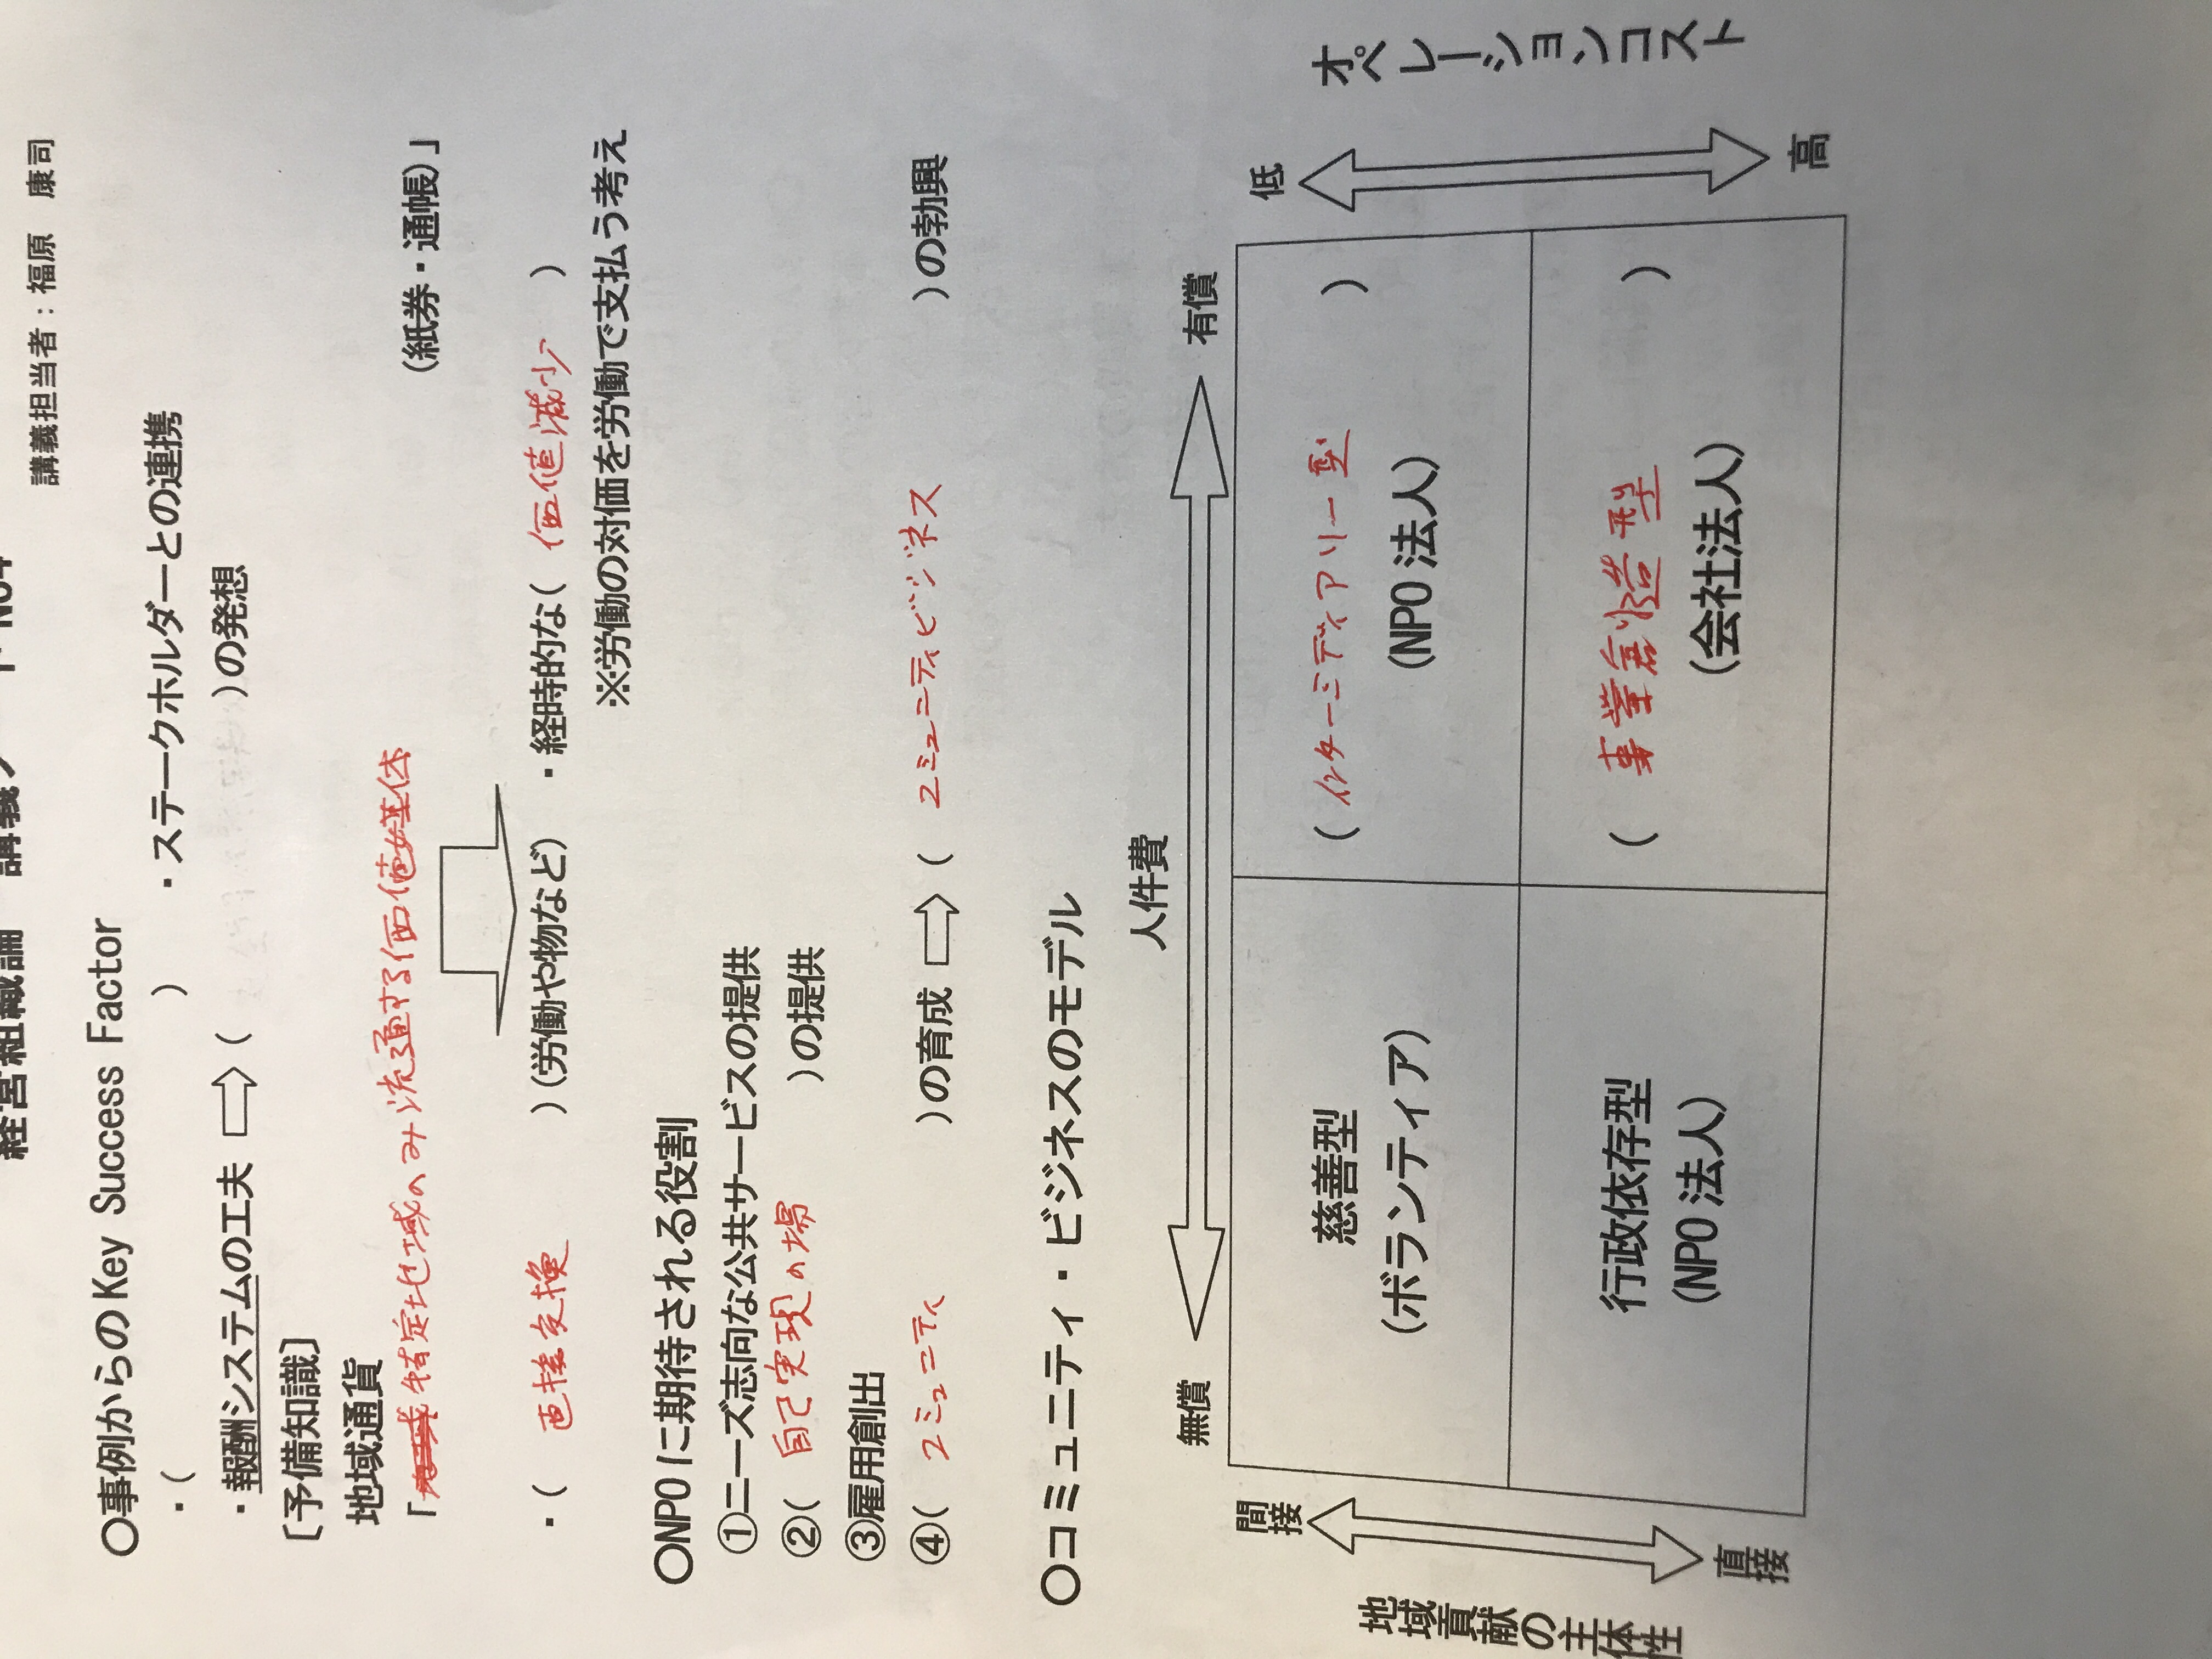 経営組織論 講義ノート No4
講義担当者：福原 康司
○事例からのKey Success Factor
・( ) ・ステークホルダーとの連携
・報酬システムの工夫 ⇨ ( )の発想
〔予備知識〕
地域通貨
「特定地域のみ流通する価値媒体 (紙券・通帳)」
・( 直接交換 )(労働や物など) ・経時的な( 価値減少 )
※労働の対価を労働で支払う考え
○NPOに期待される役割
①ニーズ志向な公共サービスの提供
②( 自己実現の場 )の提供
③雇用創出
④( コミュニティ )の育成 ⇨ ( コミュニティビジネス )の勃興
○コミュニティ・ビジネスのモデル
人件費
無償 有償
間接
低
地域貢献の主体性
オペレーションコスト
慈善型
(ボランティア)
( インターミディアリー型 )
(NPO法人)
行政依存型
(NPO法人)
( 事業創造型 )
(会社法人)
直接
高